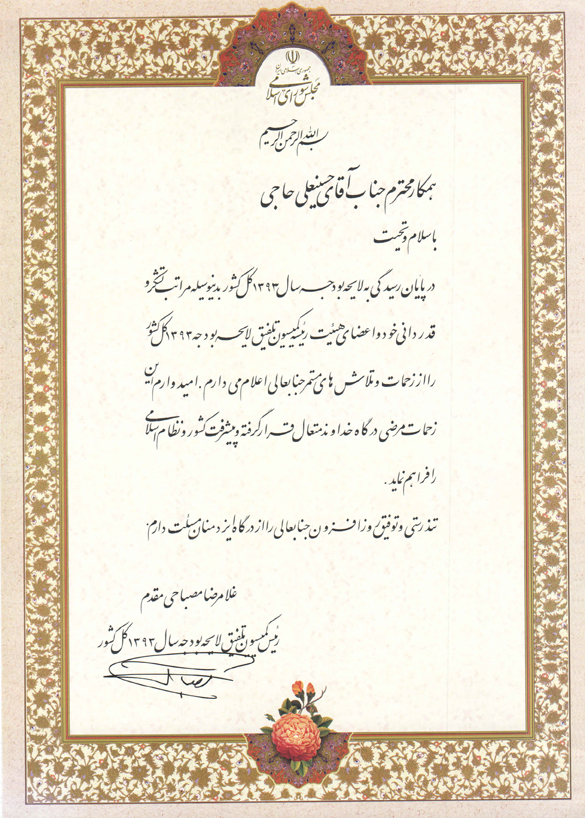 جمهوری اسلامی ایران
مجلس شورای اسلامی
بسم الله الرحمن الرحیم
همکار محترم جناب آقای حسینعلی حاجی
با سلام و تحیت
در پایان رسیدگی به لایحه بودجه سال ۱۳۹۳ کل کشور بدینوسیله مراتب تشکر و
قدردانی خود و اعضای هیئت رئیسه کمیسیون تلفیق لایحه بودجه ۱۳۹۳ کل کشور
را از زحمات و تلاش های مستمر جنابعالی اعلام می دارم . امیدوارم این
زحمات مرضی درگاه خداوند متعال قرار گرفته و پیشرفت کشور و نظام اسلامی
را فراهم نماید .
تندرستی و توفیق روزافزون جنابعالی را از درگاه ایزد منان مسئلت دارم .
غلامرضا مصباحی مقدم
رئیس کمیسیون تلفیق لایحه بودجه سال ۱۳۹۳ کل کشور